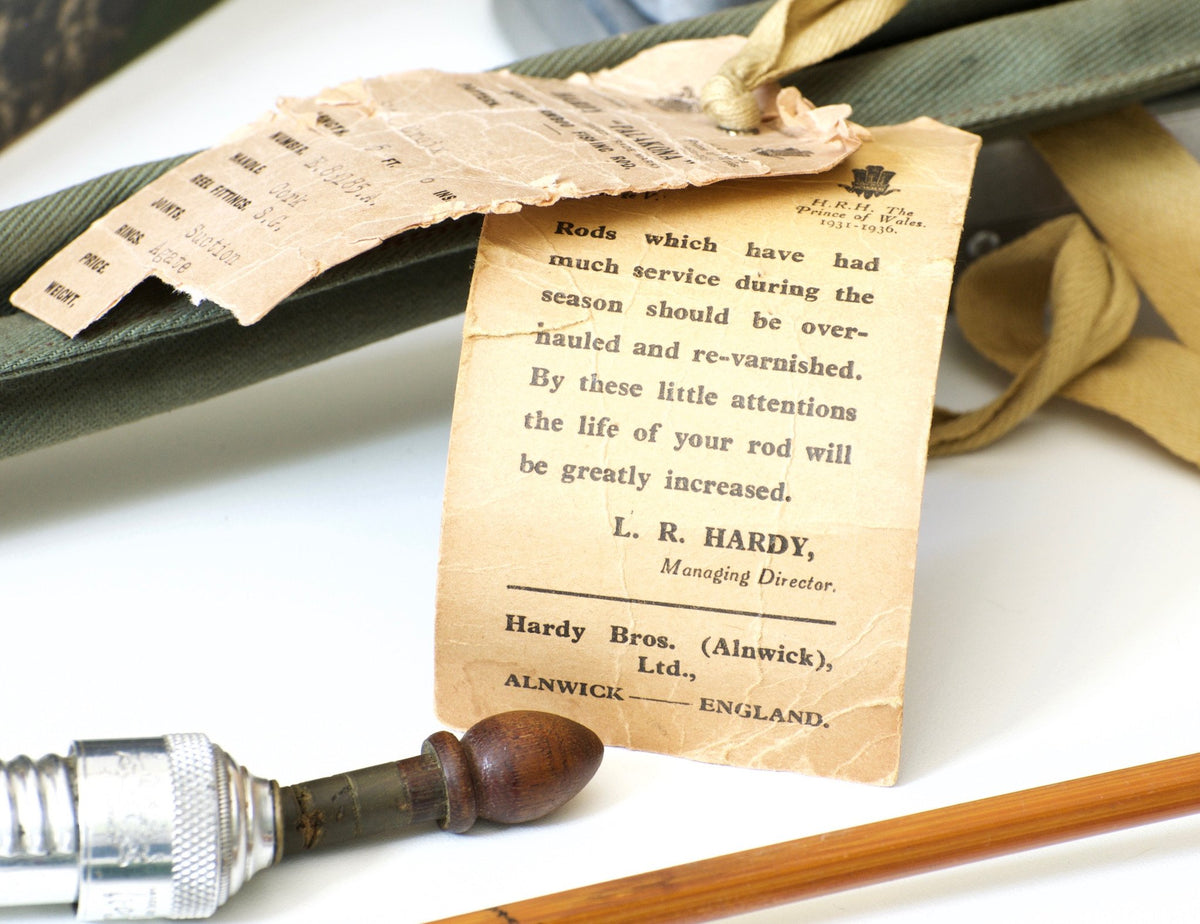 "PALAKONA"
HARDY FISHING ROD.
LENGTH 6 FT. 0 INS
NUMBER.
HANDLE Cork
REEL FITTINGS. S.G.
JOINTS. Suction
RINGS. Agate
PRICE
WEIGHT.
H.R.H. The
Prince of Wales.
1931-1936.
Rods which have had
much service during the
season should be over-
hauled and re-varnished.
By these little attentions
the life of your rod will
be greatly increased.
L. R. HARDY,
Managing Director.
Hardy Bros. (Alnwick),
Ltd.,
ALNWICK — ENGLAND.